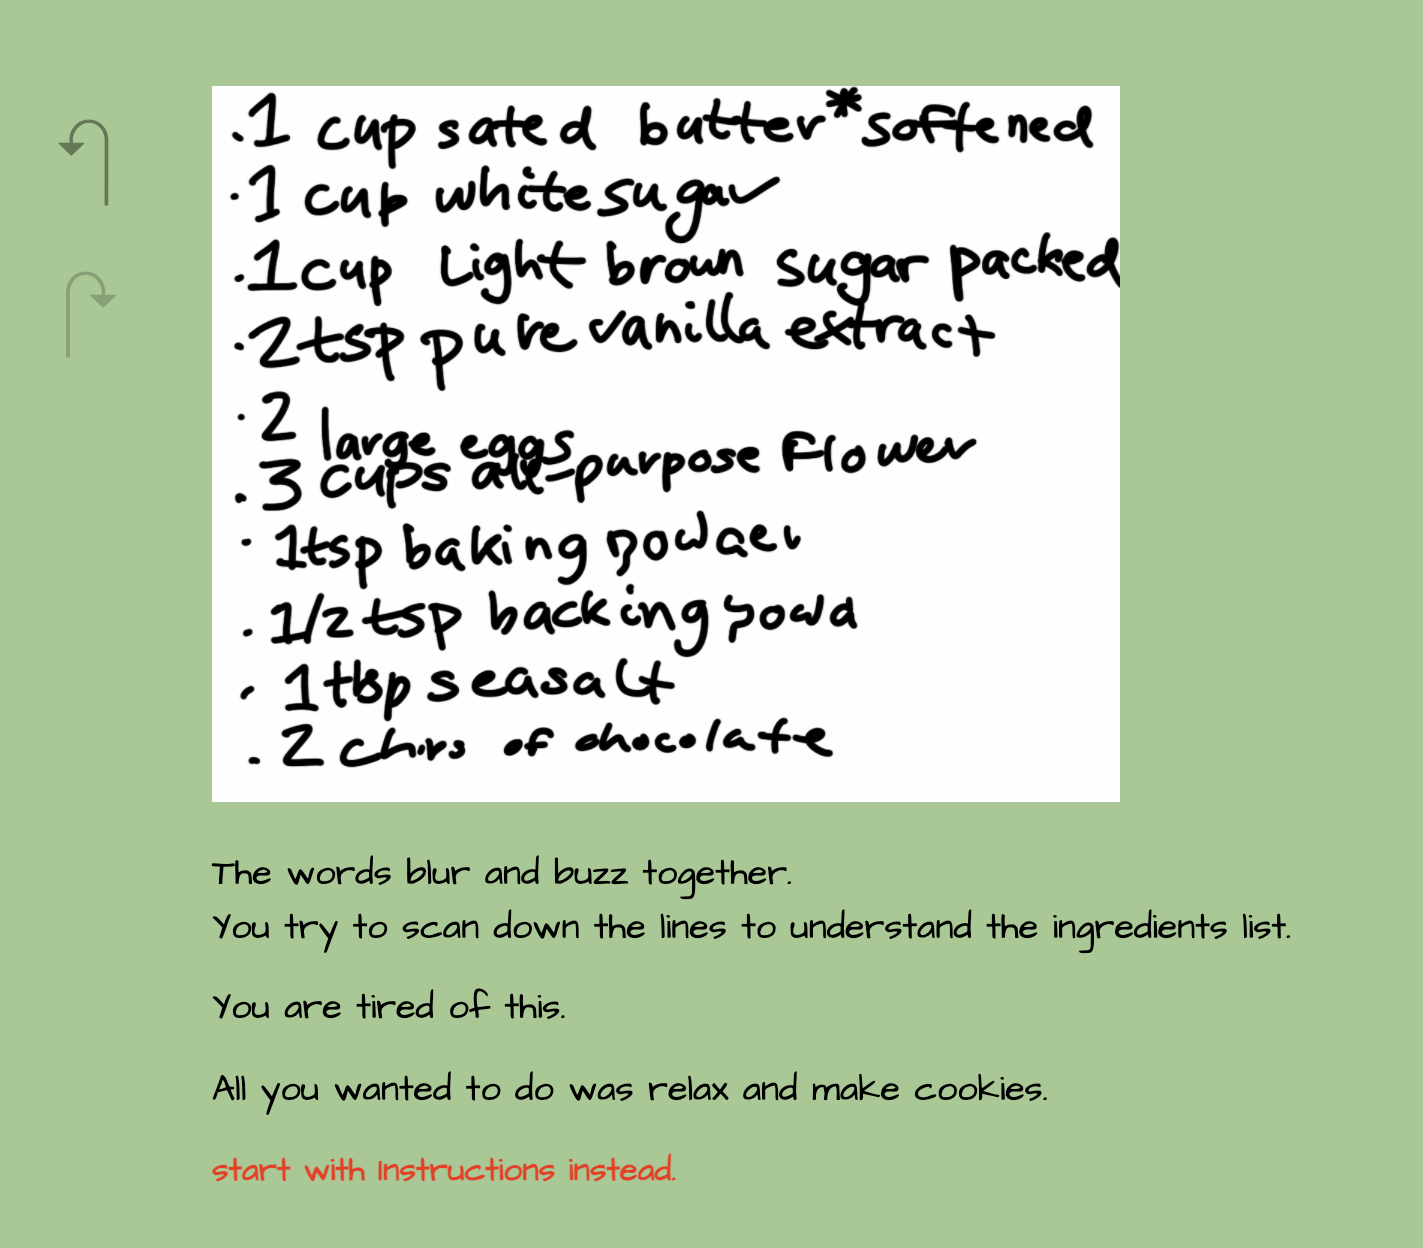 .1 cup sated butter*softened
·1 cup white sugar
.1 cup Light brown sugar packed
·2 tsp pure vanilla extract
·2 large eggs
.3 cups all-purpose Flower
·1tsp baking powder
.1/2 tsp backing powd
·1 tbsp seasalt
.2 chirs of chocolate
The words blur and buzz together.
You try to scan down the lines to understand the ingredients list.
You are tired of this.
All you wanted to do was relax and make cookies.
start with Instructions instead.